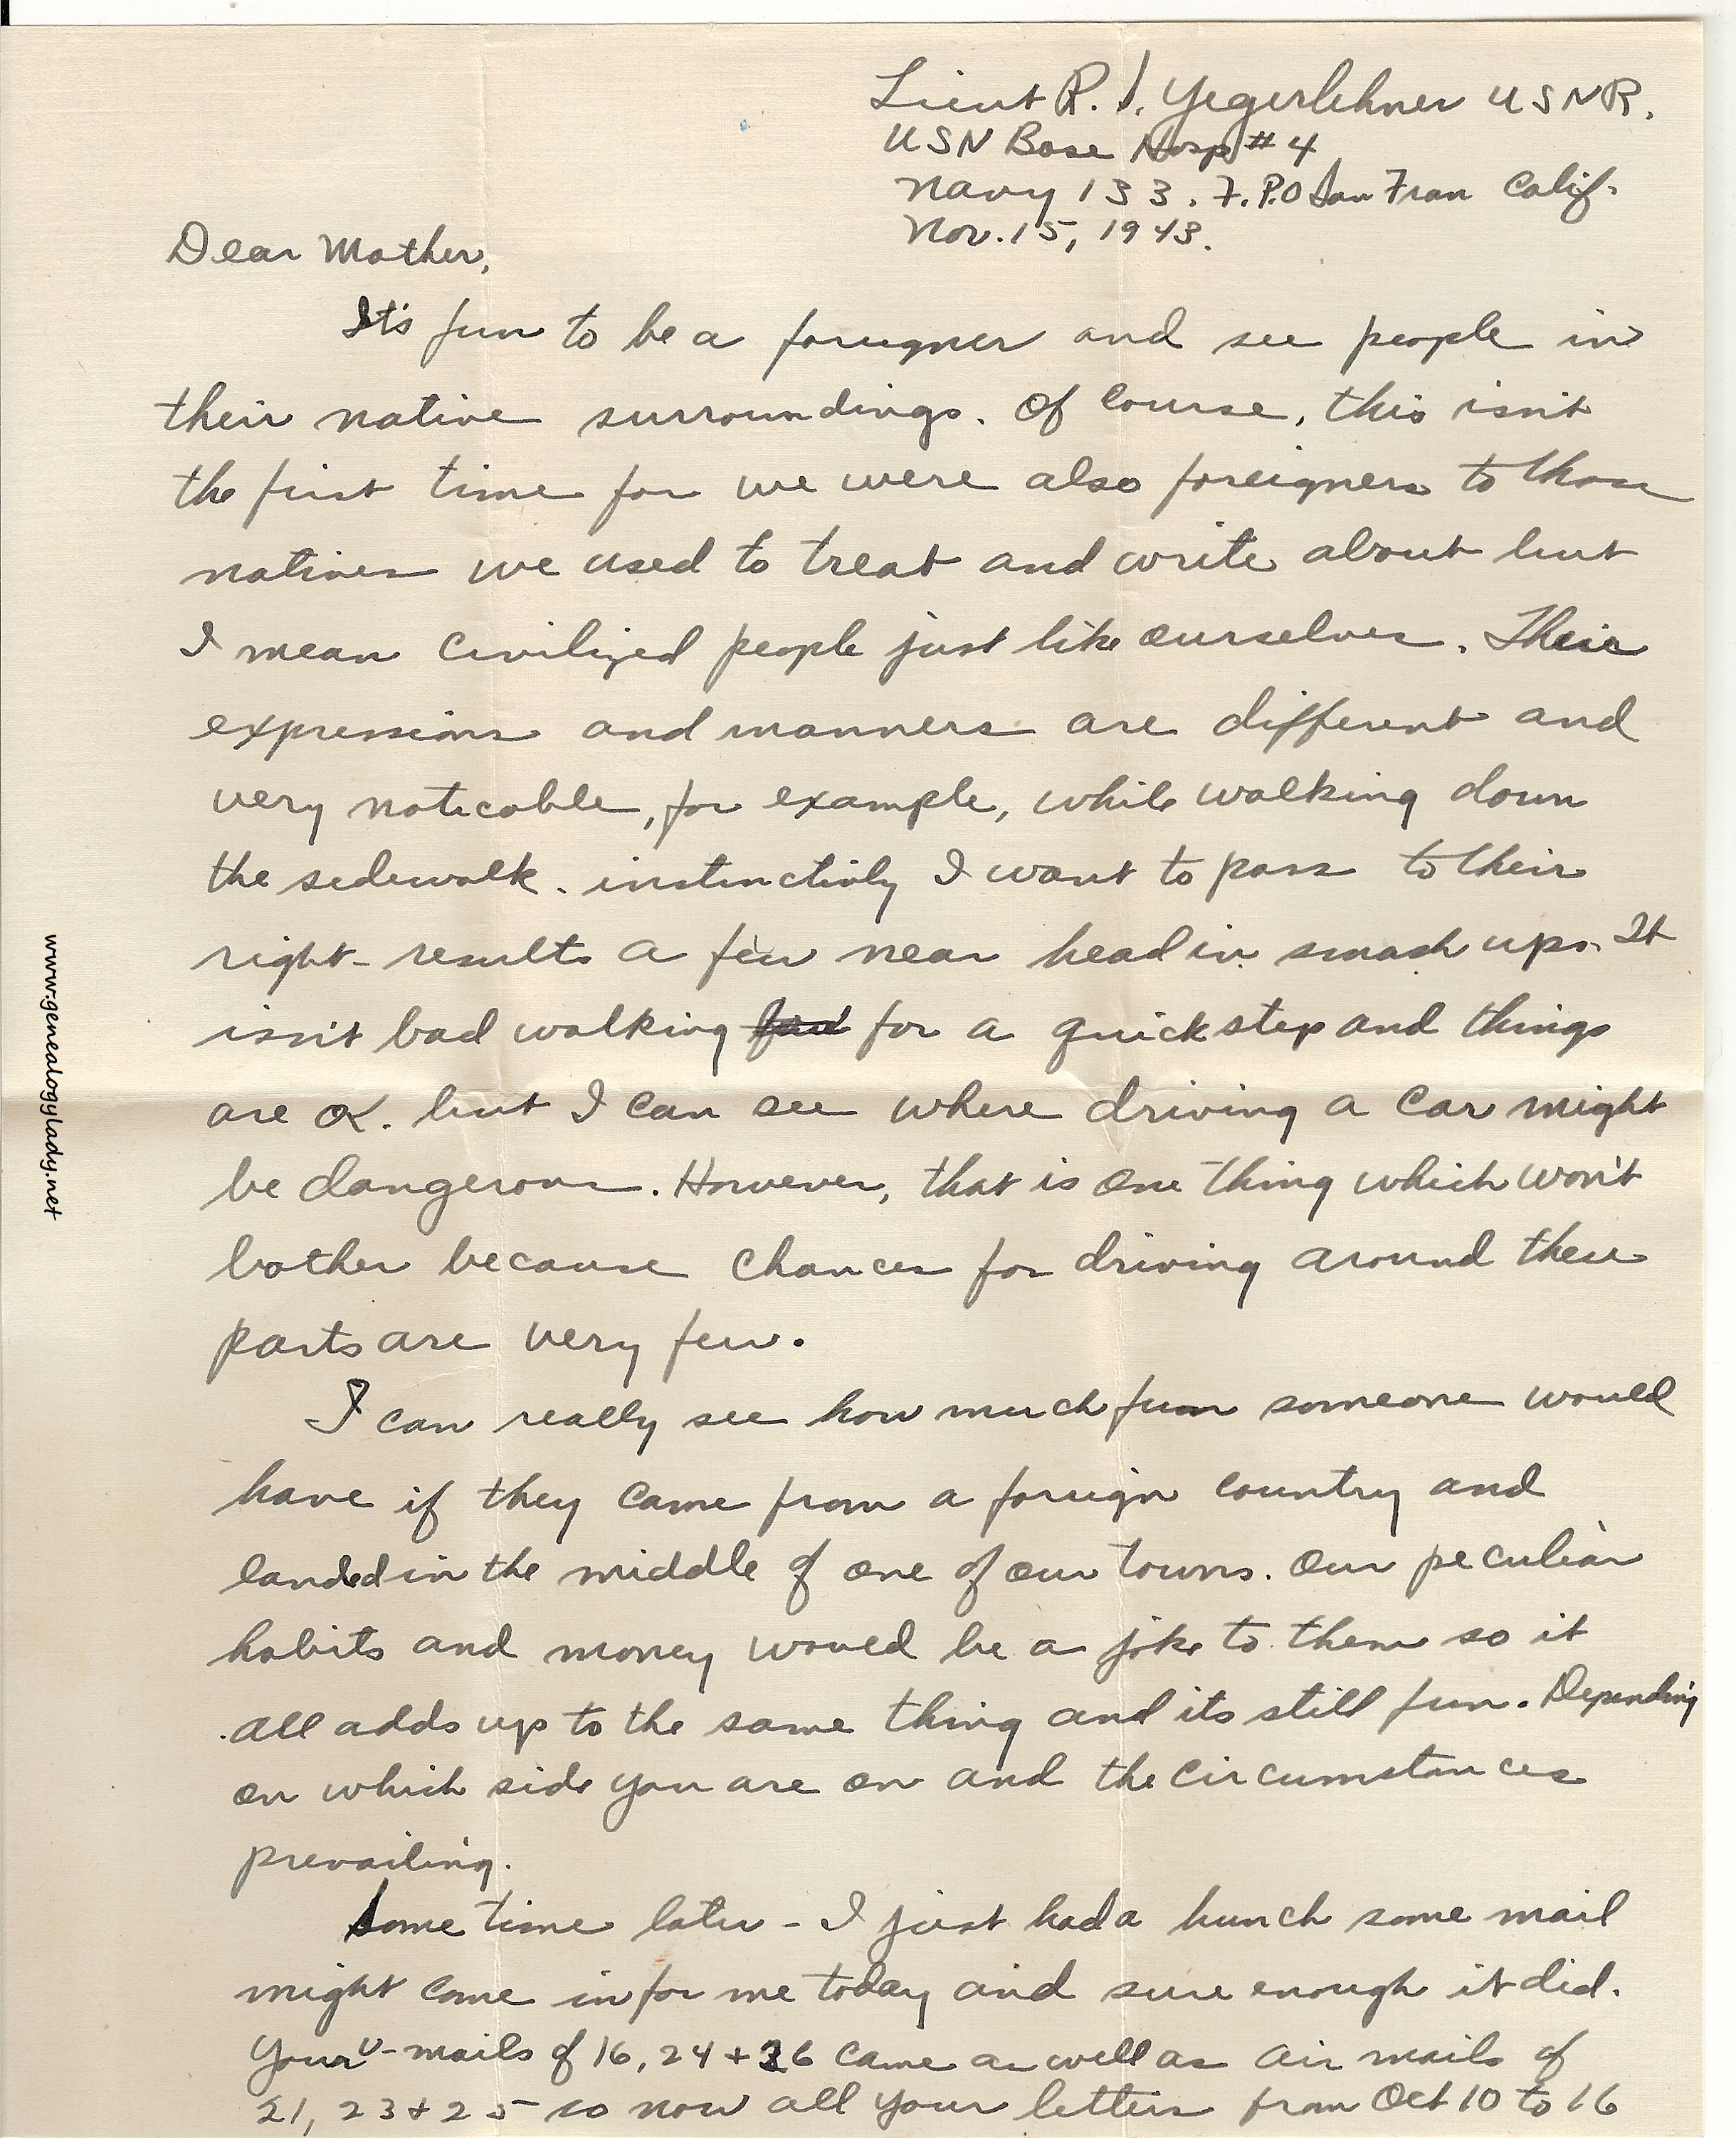 Lieut R. I. Yegerlehner USNR.
USN Base Hosp # 4
Navy 133. F.P.O San Fran Calif.
Nov. 15, 1943.
Dear Mother,
It's fun to be a foreigner and see people in
their native surroundings. Of course, this isn't
the first time for we were also foreigners to those
natives we used to treat and write about but
I mean civilized people just like ourselves. Their
expressions and manners are different and
very noticable, for example, while walking down
the sidewalk. instinctivly I want to pass to their
right - results a few near head in smash ups. It
isn't bad walking for a quick step and things
are OK. but I can see where driving a car might
be dangerous. However, that is one thing which won't
bother because chances for driving around these
parts are very few.
I can really see how much fun someone would
have if they came from a foreign country and
landed in the middle of one of our towns. Our peculiar
habits and money would be a joke to them so it
all adds up to the same thing and its still fun. Depending
on which side you are on and the circumstances
prevailing.
Some time later - I just had a hunch some mail
might come in for me today and sure enough it did.
Your V-mails of 16, 24 + 26 came as well as air mails of
21, 23 + 25 so now all your letters from Oct 10 to 16
www.genealogylady.net